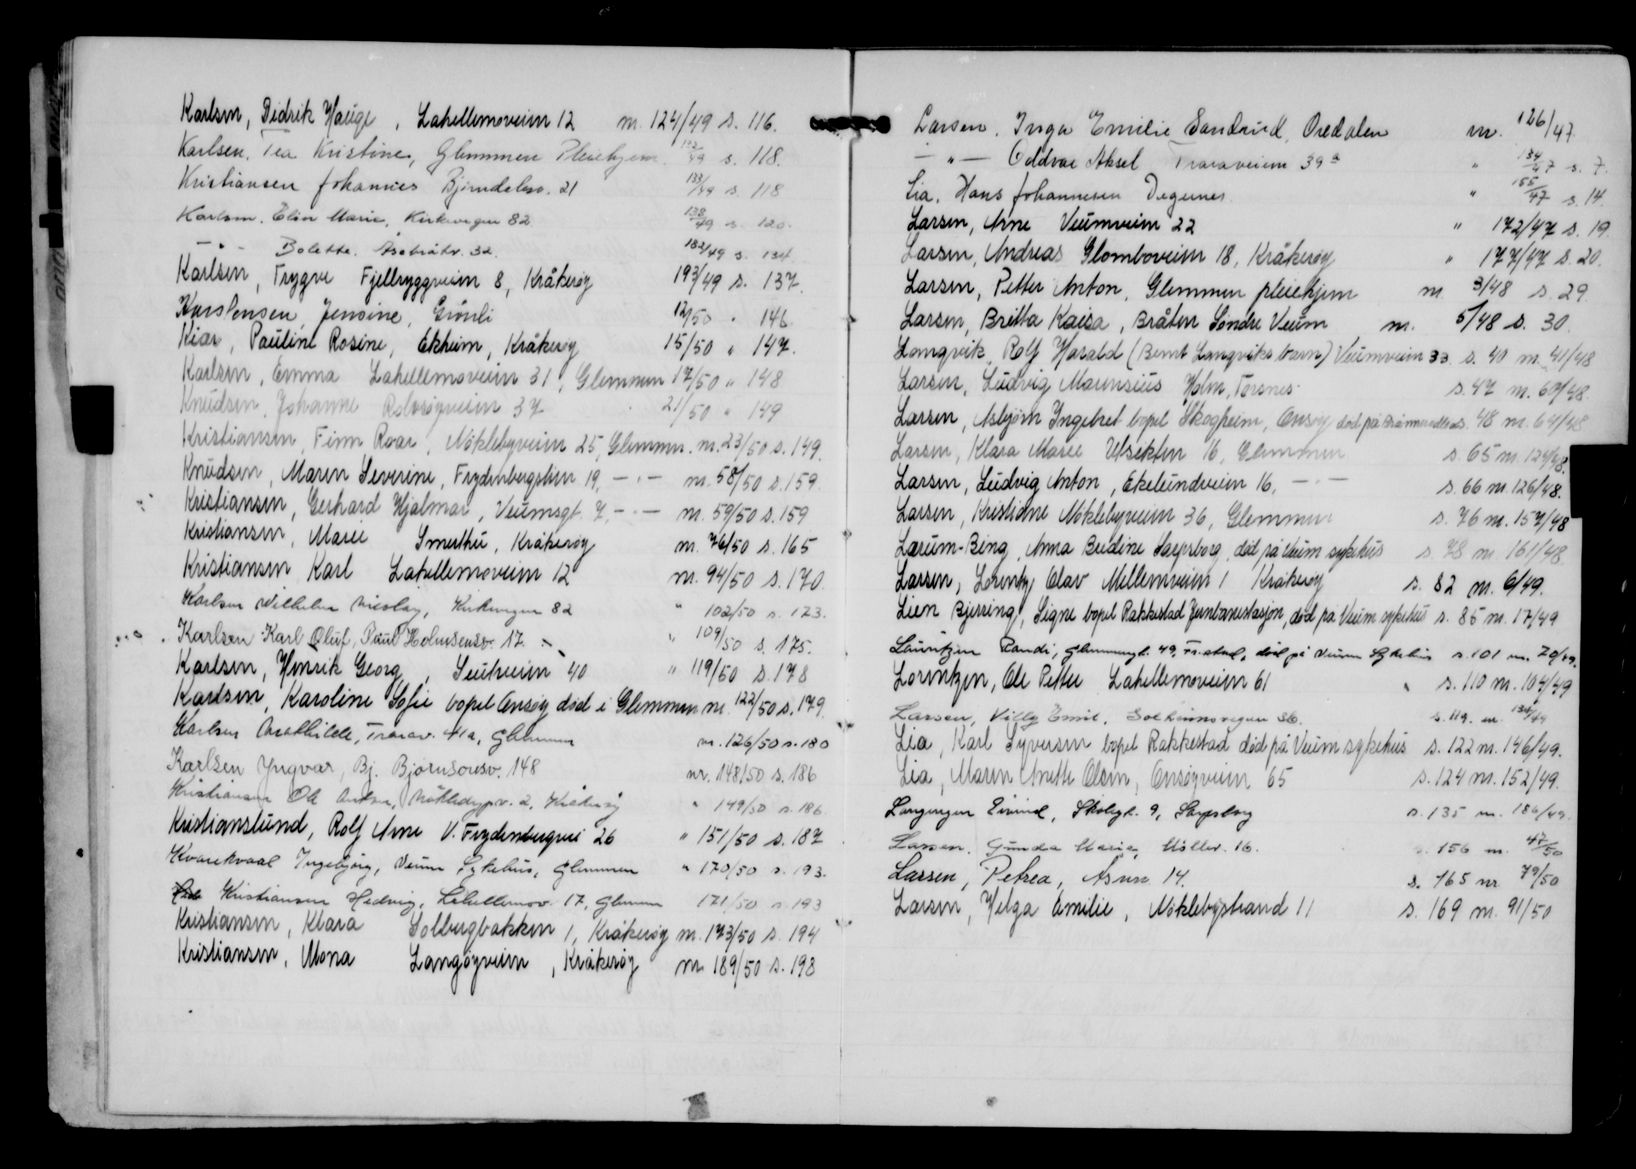 Karlsen, Didrik Hauge, Lahellemoveien 12 nr. 124/49 s. 116.
Karlsen, Tea Kristine, Glemmen Pleiehjem 132/49 s. 118.
Kristiansen Johannes Bjørndalsv. 21 133/49 s. 118
Karlsen, Elin Marie, Kirkevegen 82 138/49 s. 120.
— " — Bolette. 32. 182/49 s. 134
Karlsen, Trygve Fjellryggveien 8, Kråkerøy 193/49 s. 137.
Karstensen Jensine, Grønli 12/50 " 146
Kiær, Pauline Rosine, Ekheim, Kråkerøy 15/50 " 147.
Karlsen, Emma Lahellemoveien 31, Glemmen 17/50 " 148
Knudsen, Johanne Rolvsøyveien 37 21/50 " 149
Kristiansen, Finn Roar, Nøklebyveien 25, Glemmen. nr. 23/50 s. 149.
Knudsen, Maren Severine, Frydenbergstien 19, — " — nr. 58/50 s. 159.
Kristiansen, Gerhard Hjalmar, Veumsgt. 7, — " — nr. 59/50 s. 159
Kristiansen, Marie Smertu, Kråkerøy nr. 76/50 s. 165
Kristiansen Karl Lahellemoveien 12 nr. 94/50 s. 170.
Karlsen Wilhelm Nicolay, Kirkevegen 82 " 102/50 s. 173.
Karlsen Karl Oluf, Paul Holmsensv. 17. " 109/50 s. 175.
Karlsen, Henrik Georg, Seutveien 40 " 119/50 s. 178
Karlsen, Karoline Sofie bopel Onsøy død i Glemmen nr. 122/50 s. 179.
Karlsen Mathilde, Trarav. 41a, Glemmen nr. 126/50 s. 180
Karlsen Yngvar, Bj. Bjørnsonsv. 148 nr. 148/50 s. 186
Kristiansen Ole Anton, Nøklebyv. 2, Kråkerøy " 149/50 s. 186.
Kristianslund, Rolf Arne V. Frydenbergvei 26 " 151/50 s. 187
Kvarekvaal Ingebjørg, Veum Sykehus, Glemmen " 170/50 s. 193.
Kristiansen Hedvig, Lahellemov. 17, Glemmen 171/50 s. 193
Kristiansen, Klara Solbergbakken 1, Kråkerøy nr. 173/50 s. 194
Kristiansen, Mona Langøyveien, Kråkerøy nr. 189/50 s. 198
Larsen, Inga Emilie Sandrud, Oredalen nr. 126/47.
— " — Oddvar Aksel Traraveien 39a " 134/47 s. 7.
Lia, Hans Johannesen Degernes " 155/47 s. 14.
Larsen, Arne Veumveien 22 " 172/47 s. 19.
Larsen, Andreas Glomboveien 18, Kråkerøy " 177/47 s. 20.
Larsen, Petter Anton, Glemmen pleiehjem nr. 3/48 s. 29.
Larsen, Britta Kaisa, Bråten Søndre Veum nr. 5/48 s. 30.
Langvik, Rolf Harald (Bernt Langviks barn) Veumveien 33 s. 40 nr. 41/48
Larsen, Ludvig Marensius Holm, Torsnes s. 47 nr. 60/48.
Larsen, Asbjørn Ingebret bopel Skogheim, Onsøy død på s. 48 nr. 64/48
Larsen, Klara Marie Utsikten 16, Glemmen s. 65 nr. 124/48.
Larsen, Ludvig Anton, Ekelundveien 16, — " — s. 66 nr. 126/48.
Larsen, Kristiane Nøklebyveien 36, Glemmen s. 76 nr. 157/48
Lærum-Bing, Anna Bredine Sarpsborg, død på Veum sykehus s. 78 nr. 161/48
Larsen, Lorentz Olav Mellemveien 1 Kråkerøy s. 82 nr. 6/49.
Lien Bjerring, Signe bopel Rakkestad Jernbanestasjon, død på Veum sykehus s. 85 nr. 17/49
Lauritzen Randi, Glemmengt. 49, Fr.stad, død på Veum Sykehus s. 101 nr. 70/49.
Lorentzen, Ole Petter Lahellemoveien 61 s. 110 nr. 104/49
Larsen, Villy Emil, 36. s. 119. nr. 134/49
Lia, Karl Syversen bopel Rakkestad død på Veum sykehus s. 122 nr. 146/49.
Lia, Maren Anette Olsen, Onsøyveien 65 s. 124 nr. 152/49.
Langengen Eivind, Skolegt. 9, Sarpsborg s. 135 nr. 186/49.
Larsen, Gunda Marie, Møllev. 16. s. 156 nr. 47/50
Larsen, Petrea, Asnn 14. s. 165 nr 79/50
Larsen, Helga Emilie, Nøklebystrand 11 s. 169 nr. 91/50